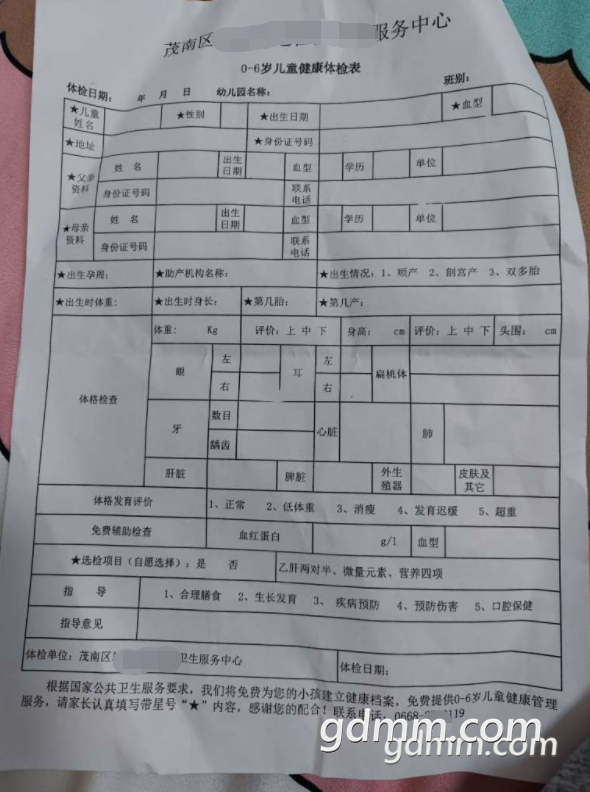 茂南区 服务中心
0-6岁儿童健康体检表
体检日期： 年 月 日 幼儿园名称： 班别：
★儿童姓名 ★性别 ★出生日期 ★血型
★地址 ★身份证号码
★父亲资料 姓 名 出生日期 血型 学历 单位
身份证号码 联系电话
★母亲资料 姓 名 出生日期 血型 学历 单位
身份证号码 联系电话
★出生孕周： ★助产机构名称： ★出生情况：1、顺产 2、剖宫产 3、双多胎
★出生时体重： ★出生时身长： ★第几胎： ★第几产：
体格检查 体重： Kg 评价：上 中 下 身高： cm 评价：上 中 下 头围： cm
眼 左 耳 左 扁桃体
右 右
牙 数目 心脏 肺
龋齿
肝脏 脾脏 外生殖器 皮肤及其它
体格发育评价 1、正常 2、低体重 3、消瘦 4、发育迟缓 5、超重
免费辅助检查 血红蛋白 g/l 血型
★选检项目（自愿选择）：是 否 乙肝两对半、微量元素、营养四项
指 导 1、合理膳食 2、生长发育 3、疾病预防 4、预防伤害 5、口腔保健
指导意见
体检单位：茂南区 卫生服务中心 体检日期：
根据国家公共卫生服务要求，我们将免费为您的小孩建立健康档案，免费提供0-6岁儿童健康管理
服务，请家长认真填写带星号“★”内容，感谢您的配合！联系电话：0668- 119
gdmm.com
gdmm.com